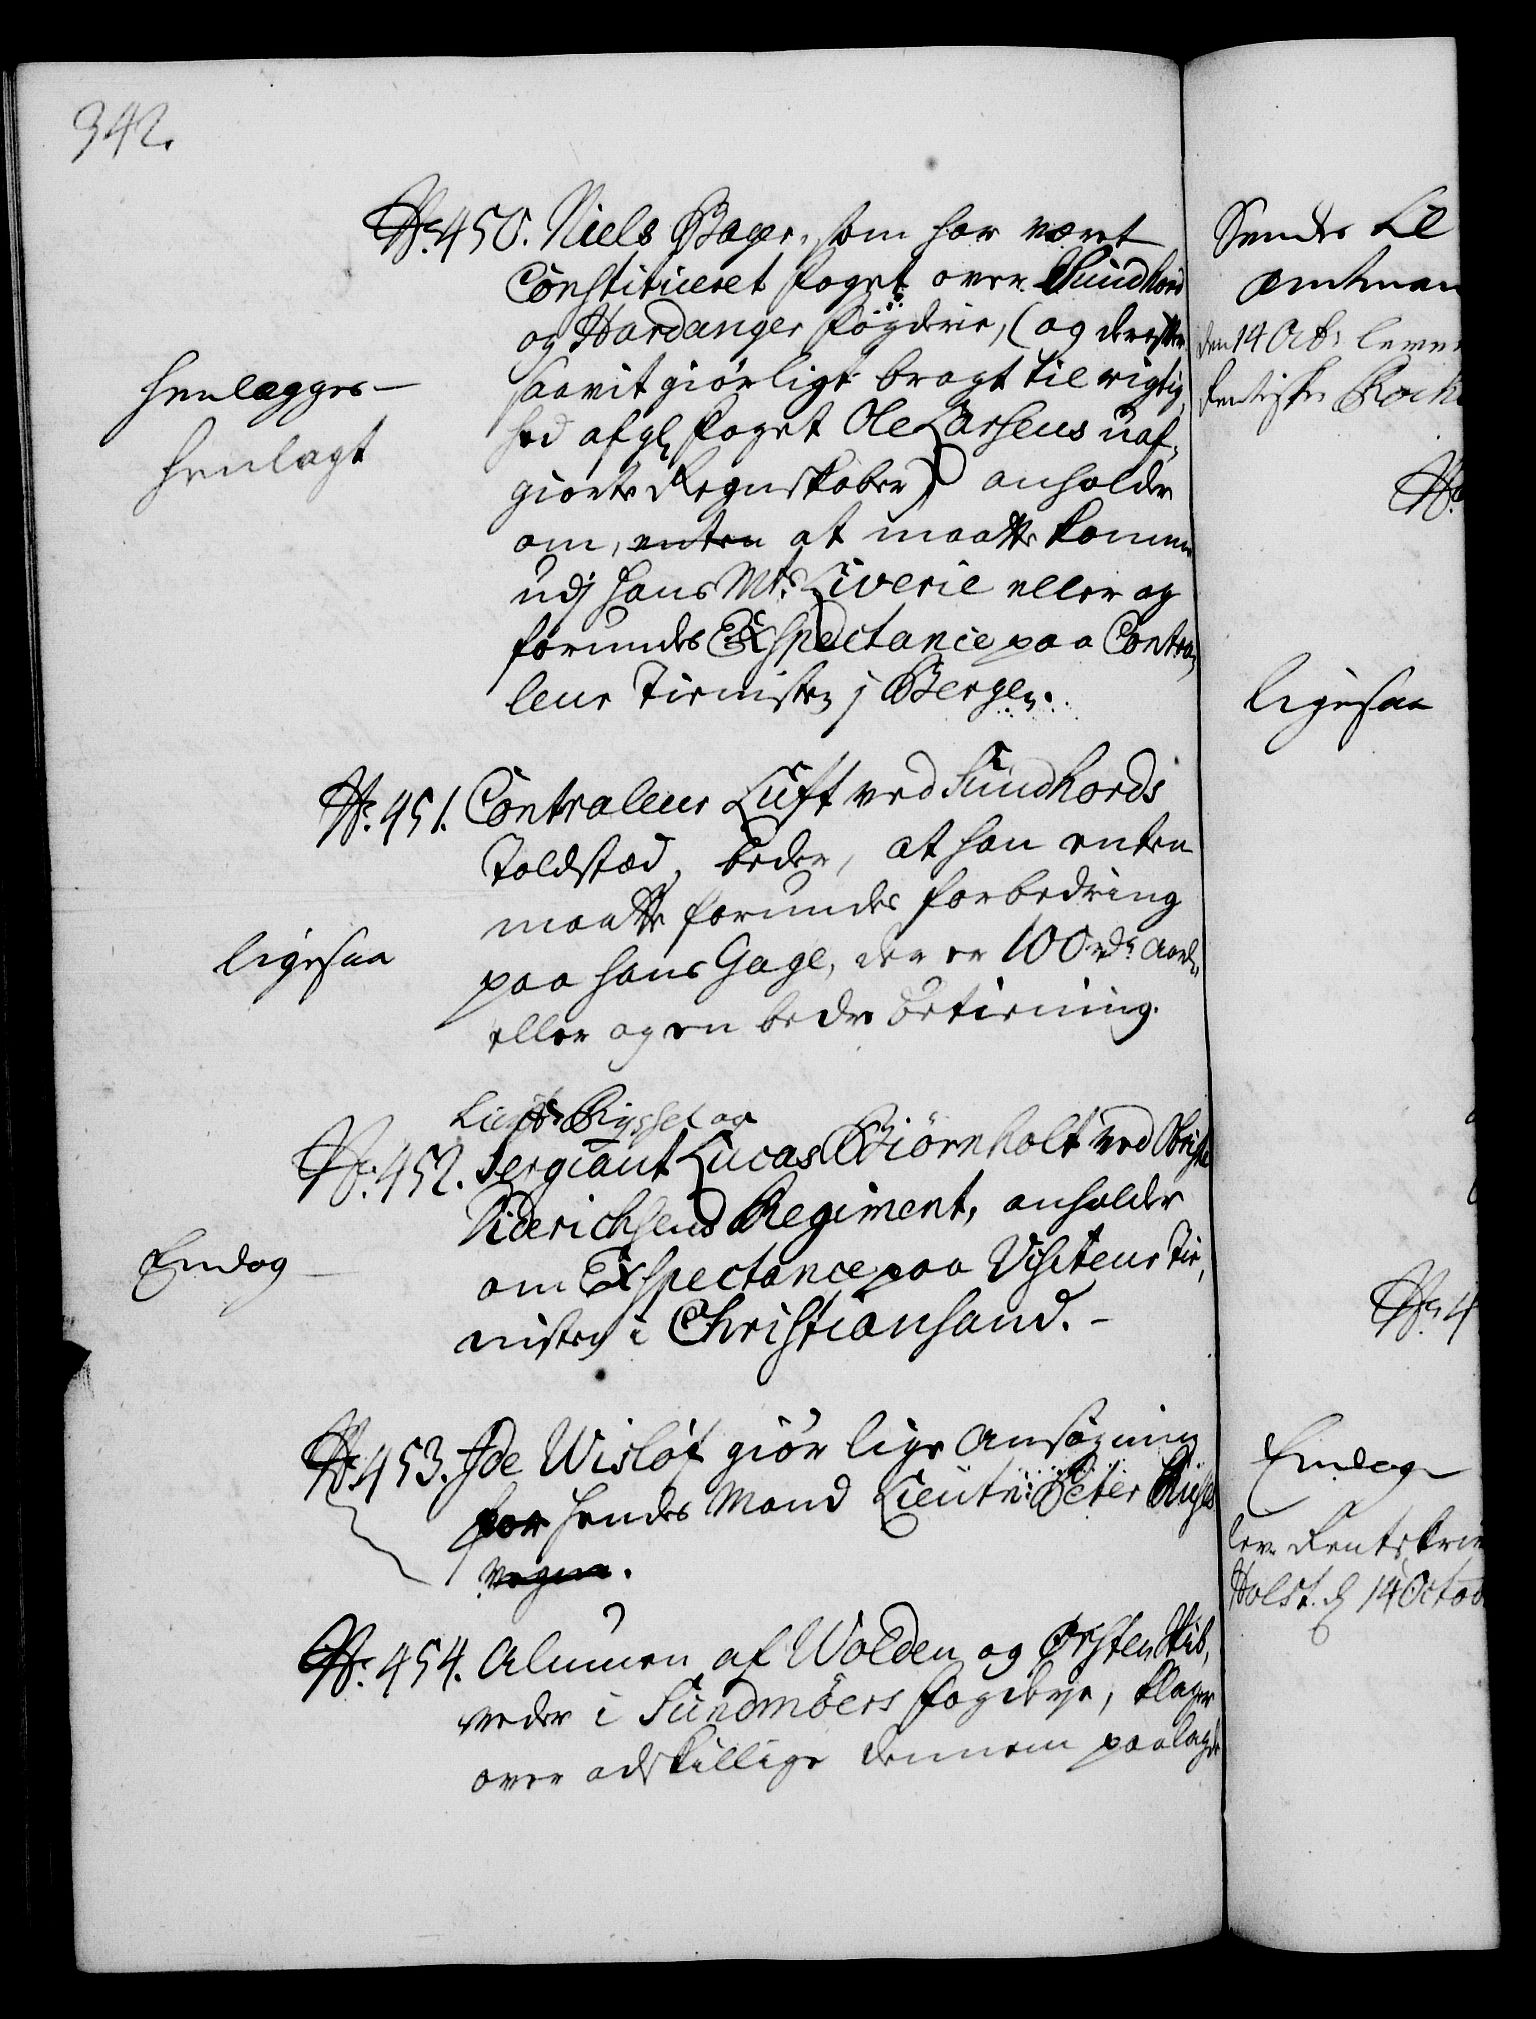 342.
No. 450. Niels Bager, som har været
Constitueret foget over Sundhord
og Hardanger fögderie, (og derefter
saavit giörligt bragt til rigtig,
hed afg. foget Ole Larsens uaf,
giorte Regnskaber) anholder
om, enten at maatte komme
udj hans Mts. Liverie eller og
forundes Exspectance paa Contra,
leur Tienisten j Bergen.
henlægges -
henlagt
No. 451. Contraleur Luft ved Sundhords
Toldstæd, beder, at han enten
maatte forundes forbedring
paa hans Gage, der er 100 rdr. aarl.
eller og en bedre betiening.
ligesaa
Lieutn. Rysset og
No. 452. Sergiant Lucas Biörnholt ved Obriste
Diderichsens Regiment, anholder
om Exspectance paa Visiteur Tie,
nisten i Christiansand. -
Endog
No. 453. Ide Wislöf giör lige Ansögning
for hendes Mand Lieutn: Peter
vegne.
No. 454. Almuen af Wolden og Ørsten Skib,
reder i Sundmöers fogderye, klager
over adskillige dennem paalagde
Sendes til
Amtman
den 14 Octb. lever
ligesaa
No. 4
Endog
lev. Rentskriv
Holst. d. 14 Octob